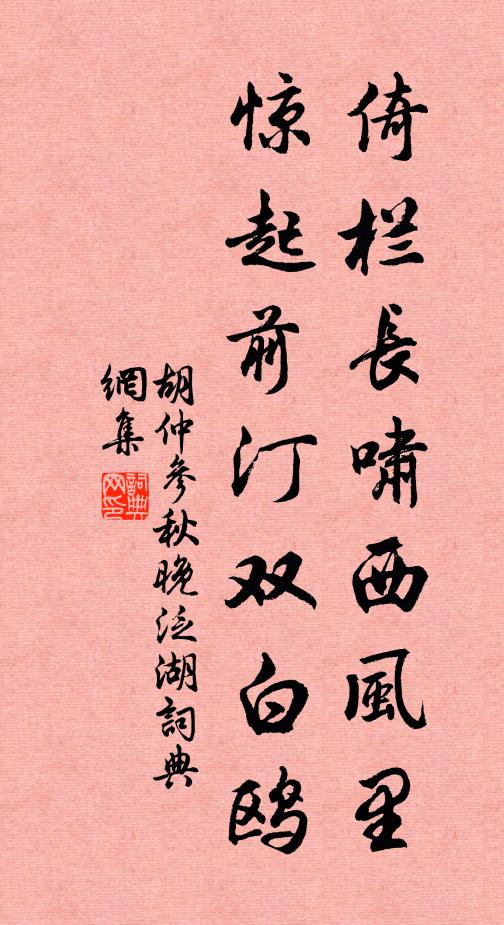 倚栏長啸西風里
惊起前汀双白鸥
胡仲參秋晚泛湖詞典
網集
詞典
网印